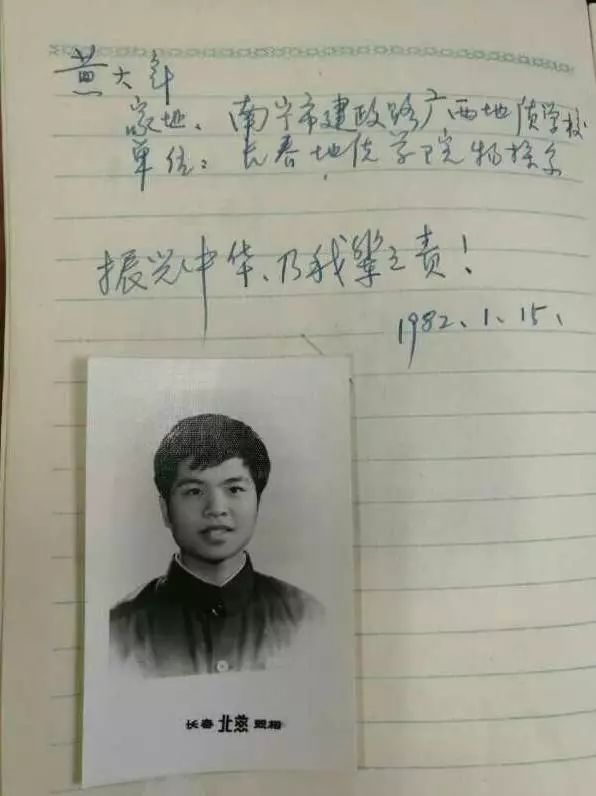 黄大年
家址：南宁市建政路广西地质学校
单位：长春地质学院物探系
振兴中华、乃我辈之责！
1982.1.15.
长春 北慈 照相